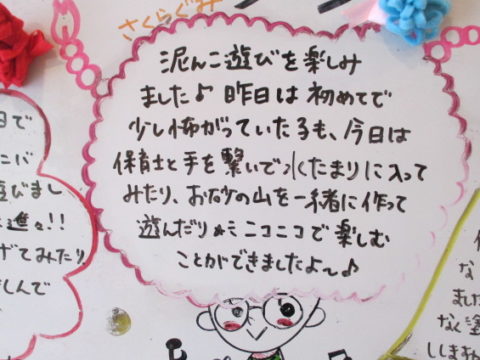 さくらぐみ
泥んこ遊びを楽しみ
ました♪昨日は初めてで
少し怖がっていた子も、今日は
保育士と手を繋いで水たまりに入って
みたり、お砂の山を一緒に作って
遊んだり☆ミニコニコで楽しむ
ことができましたよ〜♪
日で
遊びまし
進々!!
げてみたり
しんで
な
ました
なく塗